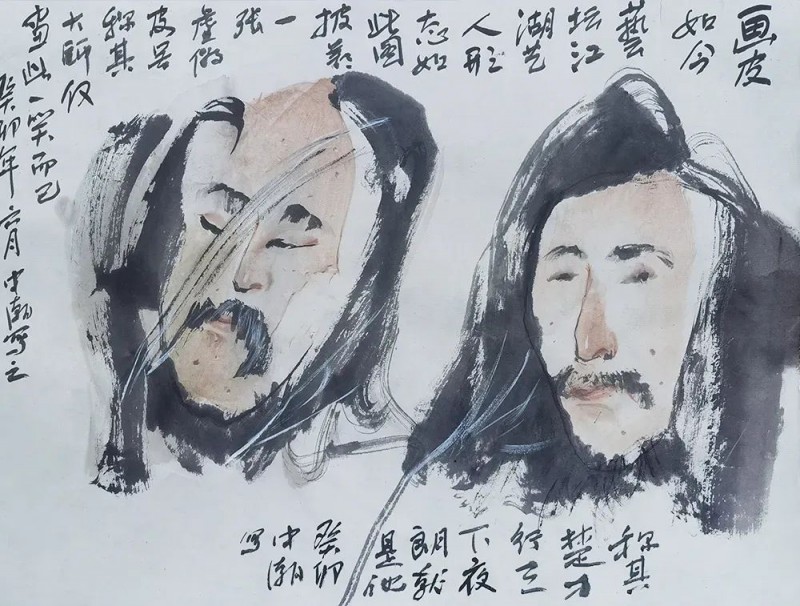 画皮
如今
藝
坛江
湖艺
人形
态如
此图
披
一
张
虚伪
皮号
称其
大师仅
当此一笑而已
癸卯年六月中潮写之
称其
楚
行三
下夜
朗
是他
癸卯
中潮
写